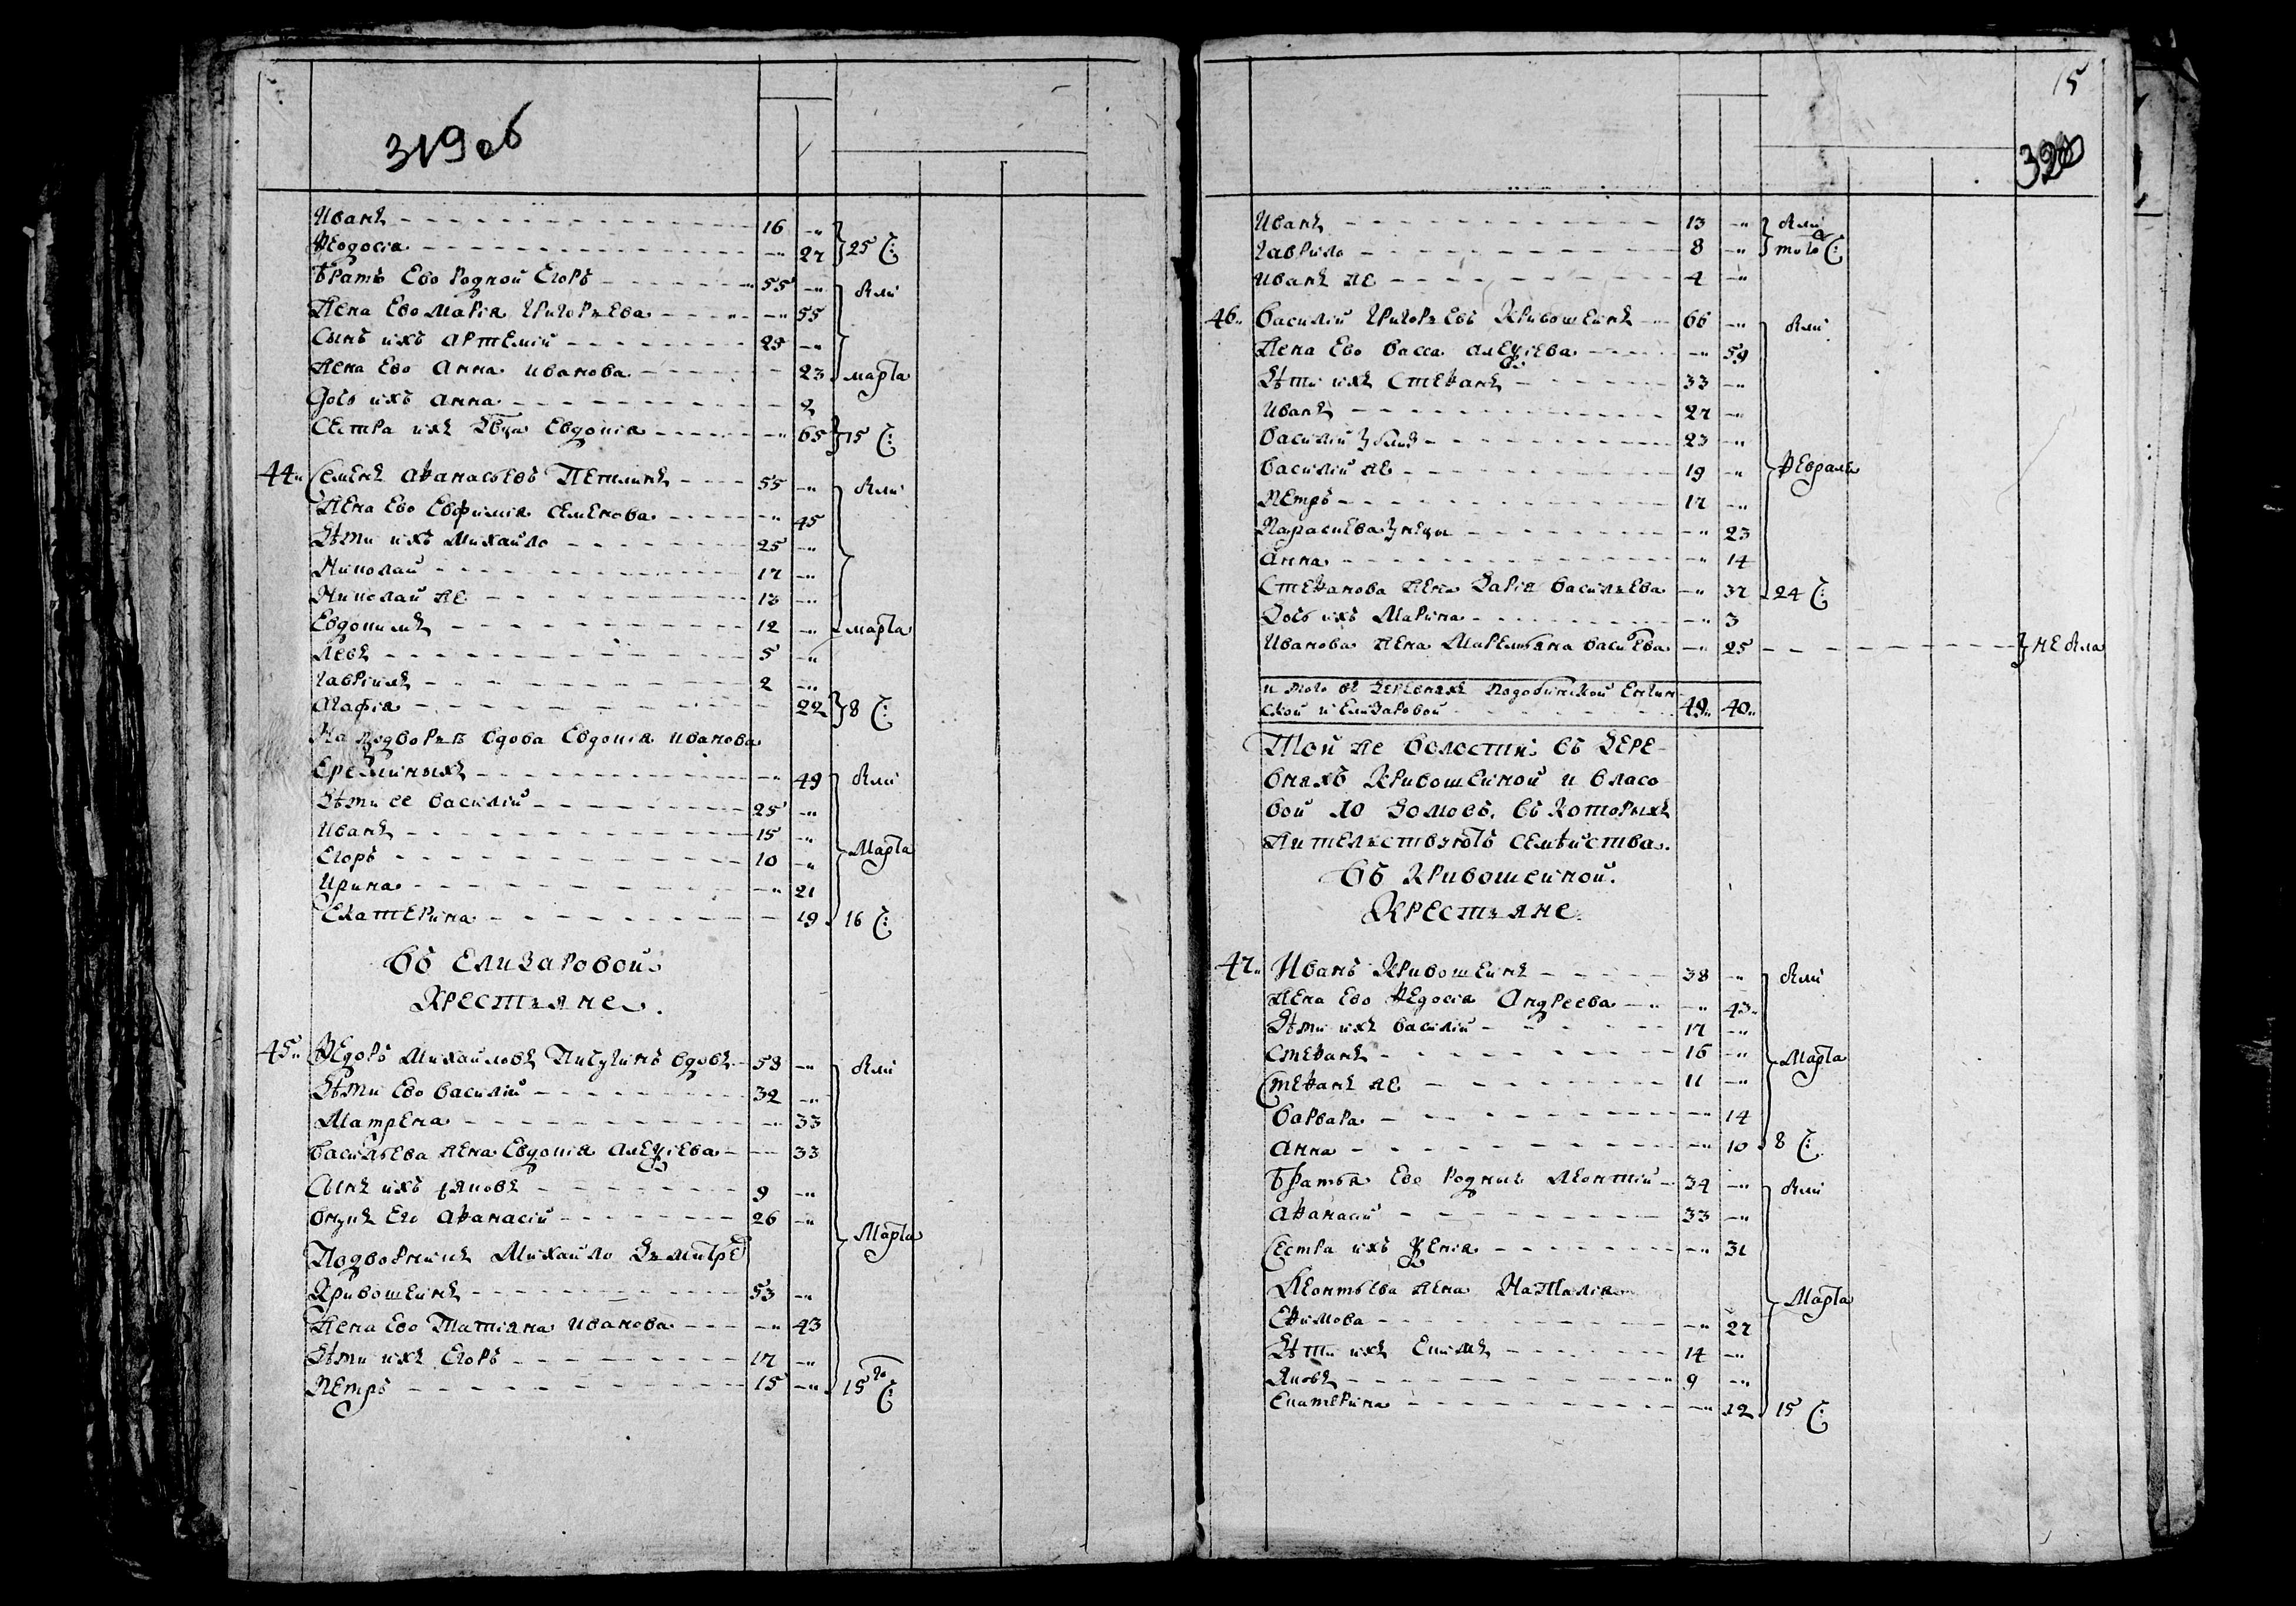 319 об
Иванъ 16 -"
Ѳеодосіа -" 27 25 Ч:
Братъ Ево родной Егоръ 55 -" были
Жена Ево Маріа Григорьева -" 55
Сынъ ихъ Артемій 25 -"
Жена Ево Анна Иванова - 23 марта
Дочь ихъ Анна - 2
Сестра ихъ двца Евдокіа -" 65 15 Ч:
44" Семенъ Аѳанасьевъ Петлинъ 55 -" были
Жена Ево Евфиміа Семенова -" 45
Дѣти ихъ Михайло 25 -"
Николай 17 -"
Николай же 13 -"
Евдокимъ 12 -" марта
Левъ 5 -"
Гавріилъ 2 -"
Агафіа - 22 8 Ч:
На подворьѣ вдова Евдокіа Иванова
Ереминыхъ -" 49 были
Дѣти ее Василій 25 -"
Иванъ 15 -"
Егоръ 10 -" Марта
Ирина -" 21
Екатерина - 19 16 Ч:
Въ Елизаровой
Крестьяне.
45" Ѳедоръ Михайловъ Пичугинъ вдовъ 58 -" были
Дѣти Ево Василій 32 -"
Матрена -" 33
Васильева жена Евдокіа Алеѯіева - 33
Сынъ ихъ Іяковъ 9 -"
Внукъ Его Аѳанасій 26 -"
Подворникъ Михайло Дьмитре Марта
Кривошеинъ 53 -"
Жена Ево Татіяна Иванова -" 43
Дѣти ихъ Егоръ 17 -"
Петръ 15 -" 15го Ч:
15
320
Иванъ 13 -" были
Гаврило 8 -" того Ч:
Иванъ же 4 -"
46" Василій Григорьевъ Кривошеинъ 66 -" были
Жена Ево Васса Алеѯіева -" 59
Дѣти ихъ Стеѳанъ 33 -"
Иванъ 27 -"
Василій 23 -"
Василій же 19 -" Ѳевраля
Петръ 17 -"
Парасиева -" 23
Анна -" 14
Стеѳанова жена Даріа Васильева -" 37 24 Ч:
Дочь ихъ Марина -" 3
Иванова жена Маремьяна Васиева -" 25 не была
и того въ деревняхъ Подобинской Енгин
ской и Елизаровой 49" 40"
Той же волости: въ дере-
вняхъ Кривошеиной и Власо
вой 10 домовъ, въ которыхъ
жительствуютъ семѣйства.
Въ Кривошеиной.
Крестьяне
47" Иванъ Кривошеинъ 38 -" были
Жена Ево Ѳедосіа Андреева -" 43"
Дѣти ихъ Василій 17 -"
Стеѳанъ 16 -" Марта
Стеѳанъ же 11 -"
Варвара -" 14
Анна -" 10 8 Ч:
Братья Ево родные Леонтій 34 -" были
Аѳанасій 33 -"
Сестра ихъ Ѯеніа -" 31
Леонтьева жена Наталіа Марта
Еѳимова -" 27
Дѣти ихъ Екимъ 14 -"
Яковъ 9 -"
Екатерина -" 12 15 Ч: